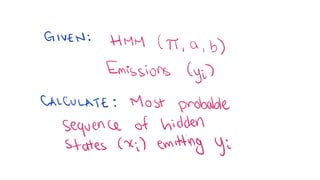 GIVEN: HMM (π, a, b)
Emissions (yi)
CALCULATE: Most probable
sequence of hidden
states (xi) emitting yi